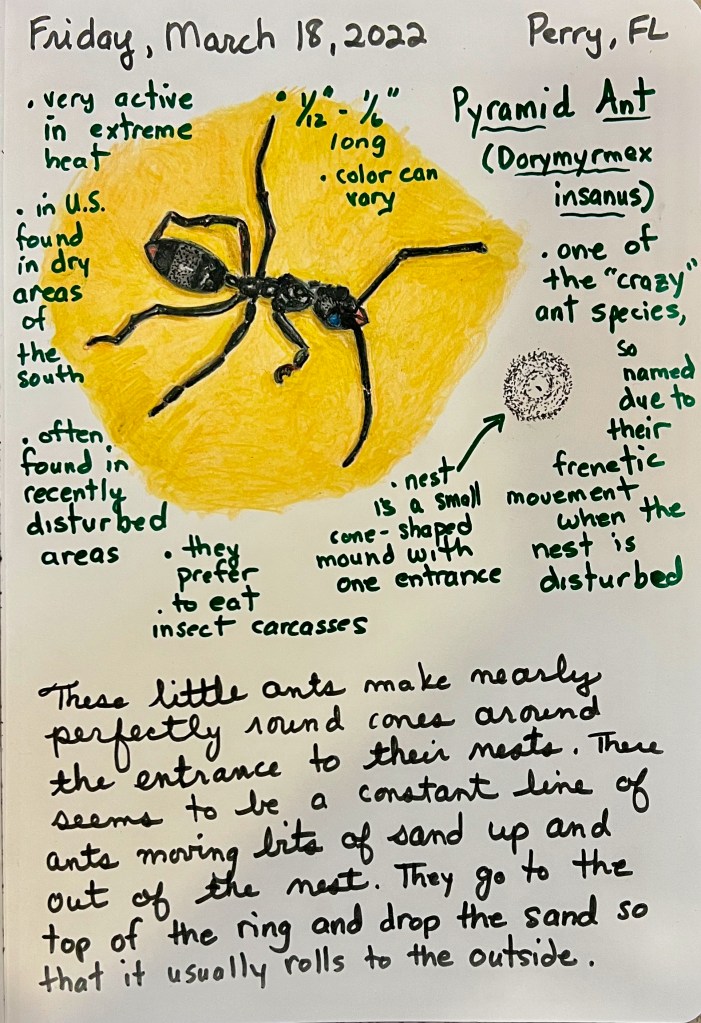 Friday, March 18, 2022
Perry, FL
• very active
in extreme
heat
• 1/12" - 1/6"
long
• color can
vary
Pyramid Ant
(Dorymyrmex
insanus)
• in U.S.
found
in dry
areas
of
the
south
• one of
the "crazy"
ant species,
so
named
due to
their
frenetic
movement
when the
nest is
disturbed
• often
found in
recently
disturbed
areas
• nest
is a small
cone-shaped
mound with
one entrance
• they
prefer
• to eat
insect carcasses
These little ants make nearly
perfectly round cones around
the entrance to their nests. There
seems to be a constant line of
ants moving bits of sand up and
out of the nest. They go to the
top of the ring and drop the sand so
that it usually rolls to the outside.